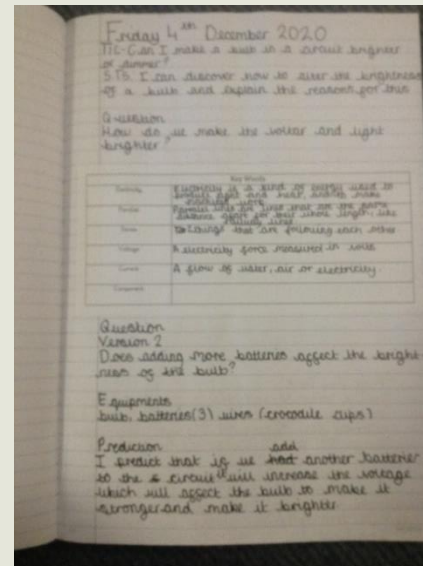 Friday 4th December 2020
TIC-Can I make a bulb in a circuit brighter
or dimmer?
S.TS. I can discover how to alter the brightness
of a bulb and explain the reasons for this
Question
How do we make the and light
brighter?
Key Words
Electricity Electricity is a kind of energy used to
produce light and heat, and to make
machines work.
Parallel lines are lines that are the same
distance apart for their whole length, like
railway lines
Series things that are following each other
Voltage A electricity force measured in volts
Current A flow of water, air or electricity.
Component
Question
Version 2
Does adding more batteries affect the bright-
ness of the bulb?
Equipments
bulb, batteries(3) wires (crocodile clips)
Prediction
I predict that if we add another batterier
to the circuit will increase the voltage
which will affect the bulb to make it
stronger and make it brighter